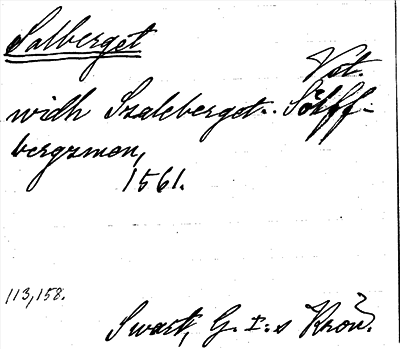 Salberget
Vst.
widh Szaleberget. Sölff-
bergzmen,
1561.
113,158.
Swart, G. I:s Krön.